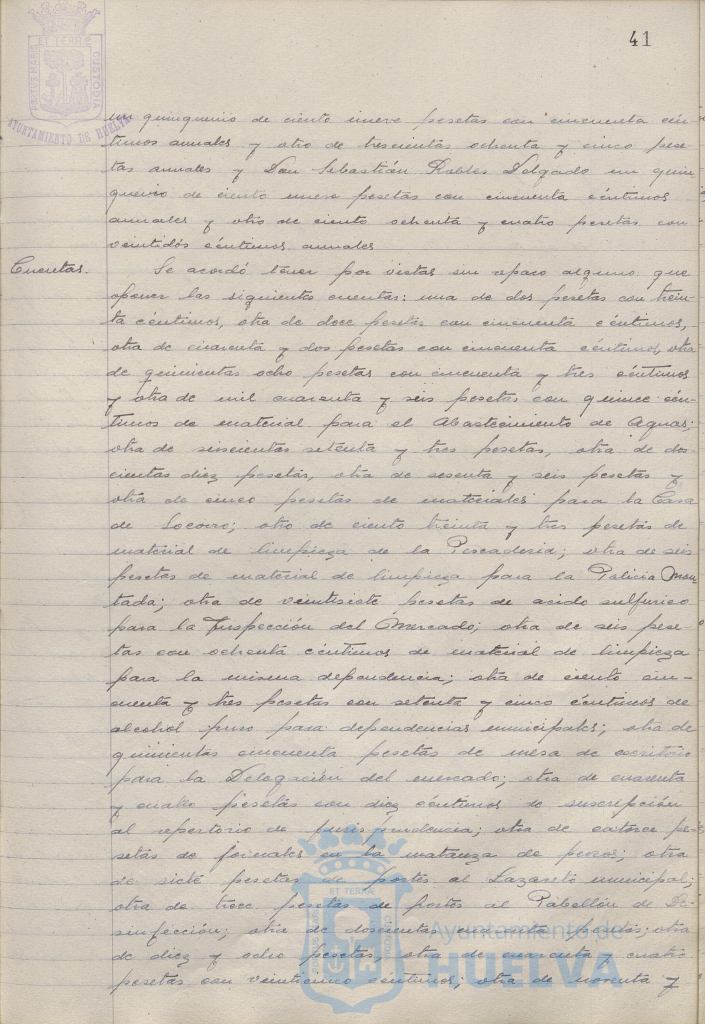 41
PORTUS MARIS ET TERRÆ CUSTODIA
AYUNTAMIENTO DE HUELVA
un quinquenio de ciento nueve pesetas con cincuenta cén-
timos anuales y otro de trescientas ochenta y cinco pese-
tas anuales y Don Sebastián Robles Delgado un quin
quenio de ciento nueve pesetas con cincuenta céntimos
anuales y otro de ciento ochenta y cuatro pesetas con
veintidós céntimos anuales
Cuentas. Se acordó tener por vistas sin reparo alguno que
oponer las siguientes cuentas: una de dos pesetas con trein-
ta céntimos, otra de doce pesetas con cincuenta céntimos,
otra de cuarenta y dos pesetas con cincuenta céntimos, otra
de quinientas ocho pesetas con cincuenta y tres céntimos
y otra de mil cuarenta y seis pesetas con quince cén-
timos de material para el Abastecimiento de Aguas;
otra de seiscientas setenta y tres pesetas, otra de dos-
cientas diez pesetas, otra de sesenta y seis pesetas y
otra de cinco pesetas de materiales para la Casa
de Socorro; otro de ciento treinta y tres pesetas de
material de limpieza de la Pescadería; otra de seis
pesetas de material de limpieza para la Policia Mon
tada; otra de veintisiete pesetas de acido sulfurico
para la Inspección del Mercado; otra de seis pese-
tas con ochenta céntimos de material de limpieza
para la misma dependencia; otra de ciento cin-
cuenta y tres pesetas con setenta y cinco céntimos de
alcohol puro para dependencias municipales; otra de
quinientas cincuenta pesetas de mesa de escritorio
para la Delegación del mercado; otra de cuarenta
y cuatro pesetas con diez céntimos de suscripción
al repertorio de jurisprudencia; otra de catorce pe-
setas de jornales en la matanza de perros; otra
de siete pesetas de portes al Lazareto municipal;
otra de trece pesetas de portes al Pabellón de De-
sinfección; otra de doscientas; otra
de diez y ocho pesetas, otra de cuarenta y cuatro
pesetas con veinticinco céntimos; otra de noventa y
Ayuntamiento de
HUELVA